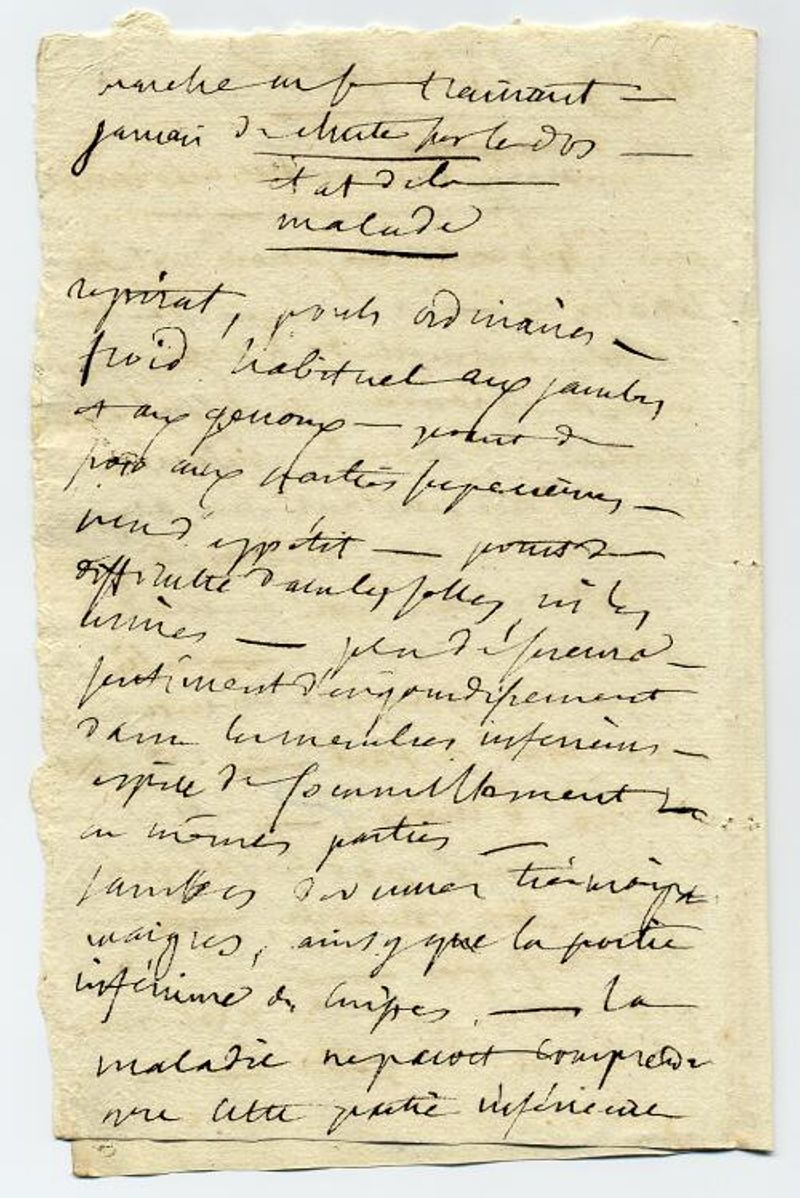 marche en se trainant —
jamais de chute sur le dos —
état de la
malade
respirat, pouls ordinaires —
froid habituel aux jambes
et aux genoux — point de
froid aux parties superieures —
peu d'appétit — point de
difficulté dans les selles, ni les
urines —
sentiment d'engourdissement
dans les membres inferieurs —
espèce de fourmillement
en mêmes parties —
jambes devenues très
maigres, ainsy que la partie
inférieure des cuisses. — la
maladie ne paroit comprendre
que cette partie inférieure